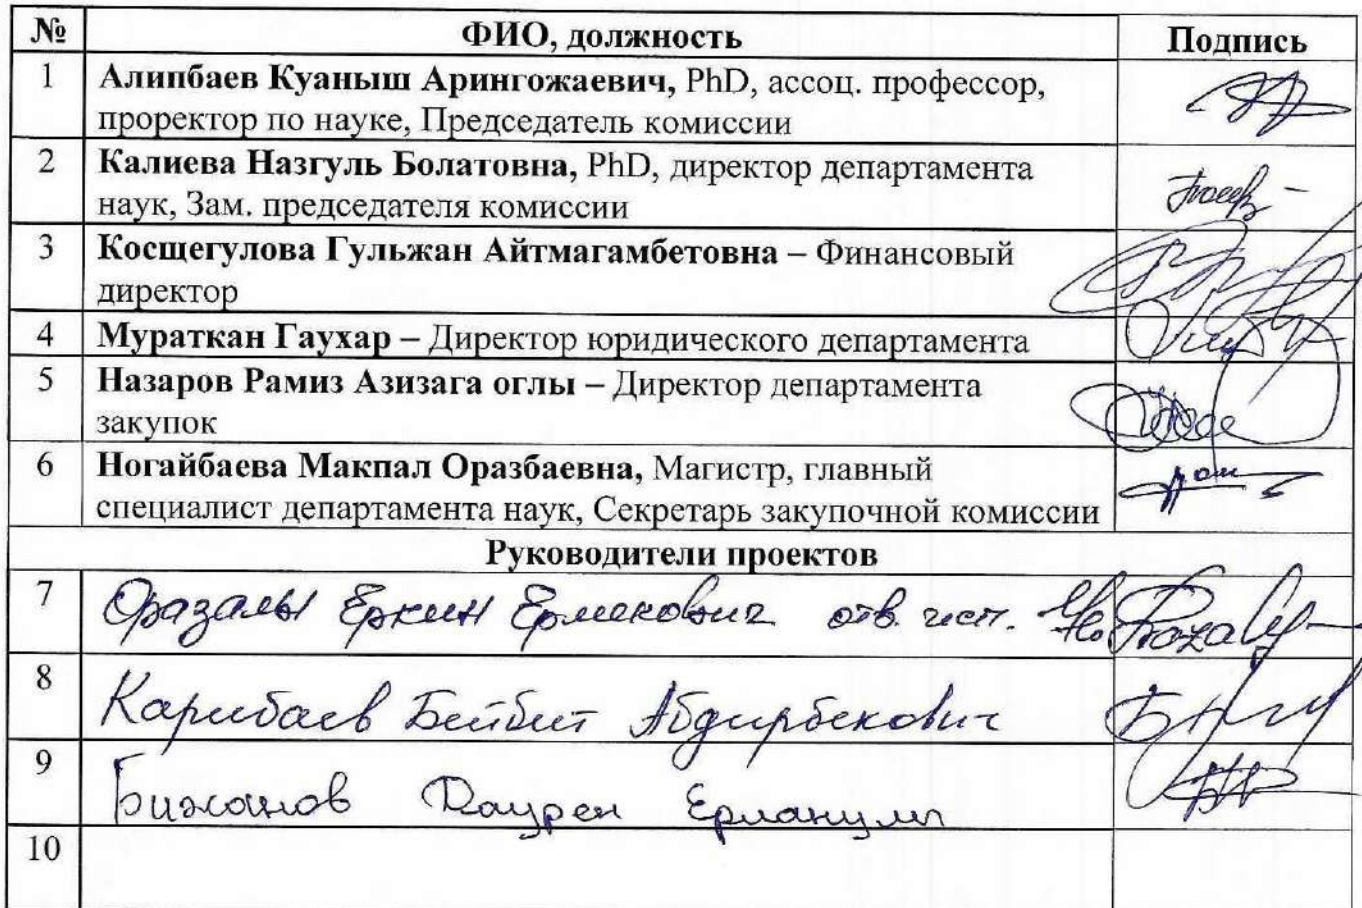 № ФИО, должность Подпись
1 Алипбаев Куаныш Арингожаевич, PhD, ассоц. профессор,
проректор по науке, Председатель комиссии
2 Калиева Назгуль Болатовна, PhD, директор департамента
наук, Зам. председателя комиссии
3 Косщегулова Гульжан Айтмагамбетовна – Финансовый
директор
4 Мураткан Гаухар – Директор юридического департамента
5 Назаров Рамиз Азизага оглы – Директор департамента
закупок
6 Ногайбаева Макпал Оразбаевна, Магистр, главный
специалист департамента наук, Секретарь закупочной комиссии
Руководители проектов
7 Оразалы Еркин Ермекович отв. исп.
8 Карибаев Бейбит Абдирбекович
9 Бижанов Даурен Ерланулы
10